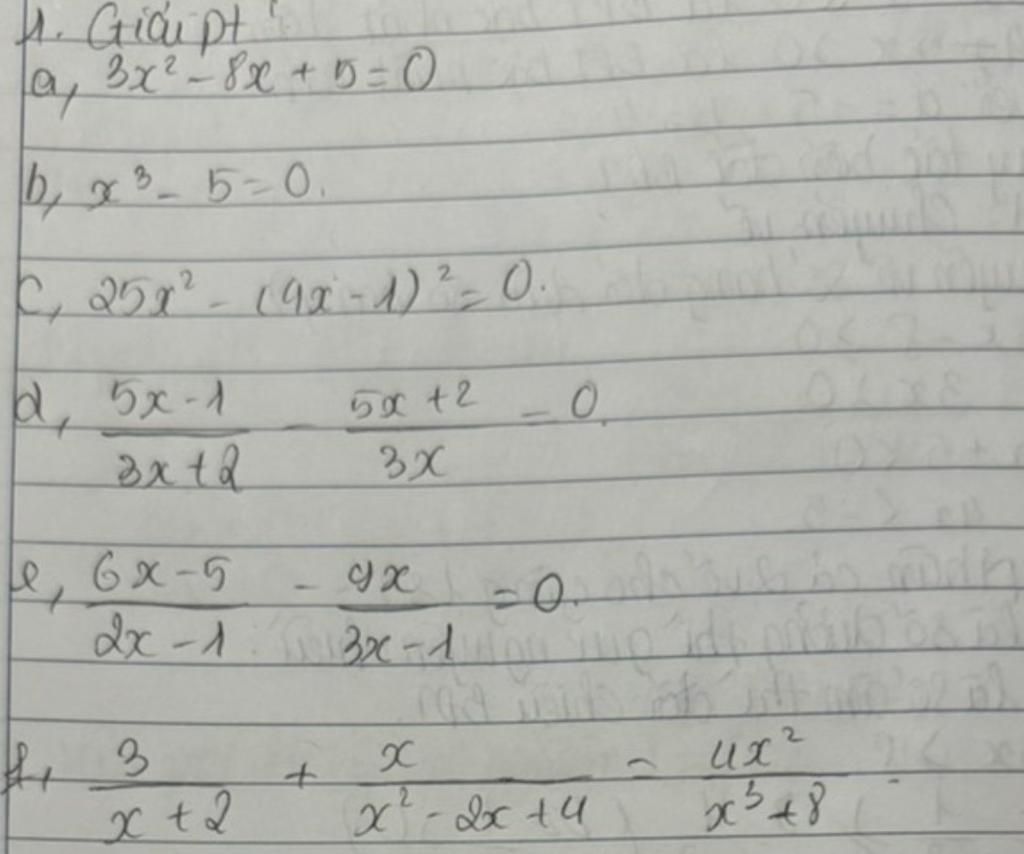 1. Giải pt
a, 3x² - 8x + 5 = 0
b, x³ - 5 = 0.
c, 25x² - (9x - 1)² = 0.
d, (5x - 1)/(3x + 2) - (5x + 2)/(3x) = 0.
e, (6x - 5)/(2x - 1) - (9x)/(3x - 1) = 0.
f, 3/(x + 2) + x/(x² - 2x + 4) = 4x²/(x³ + 8)